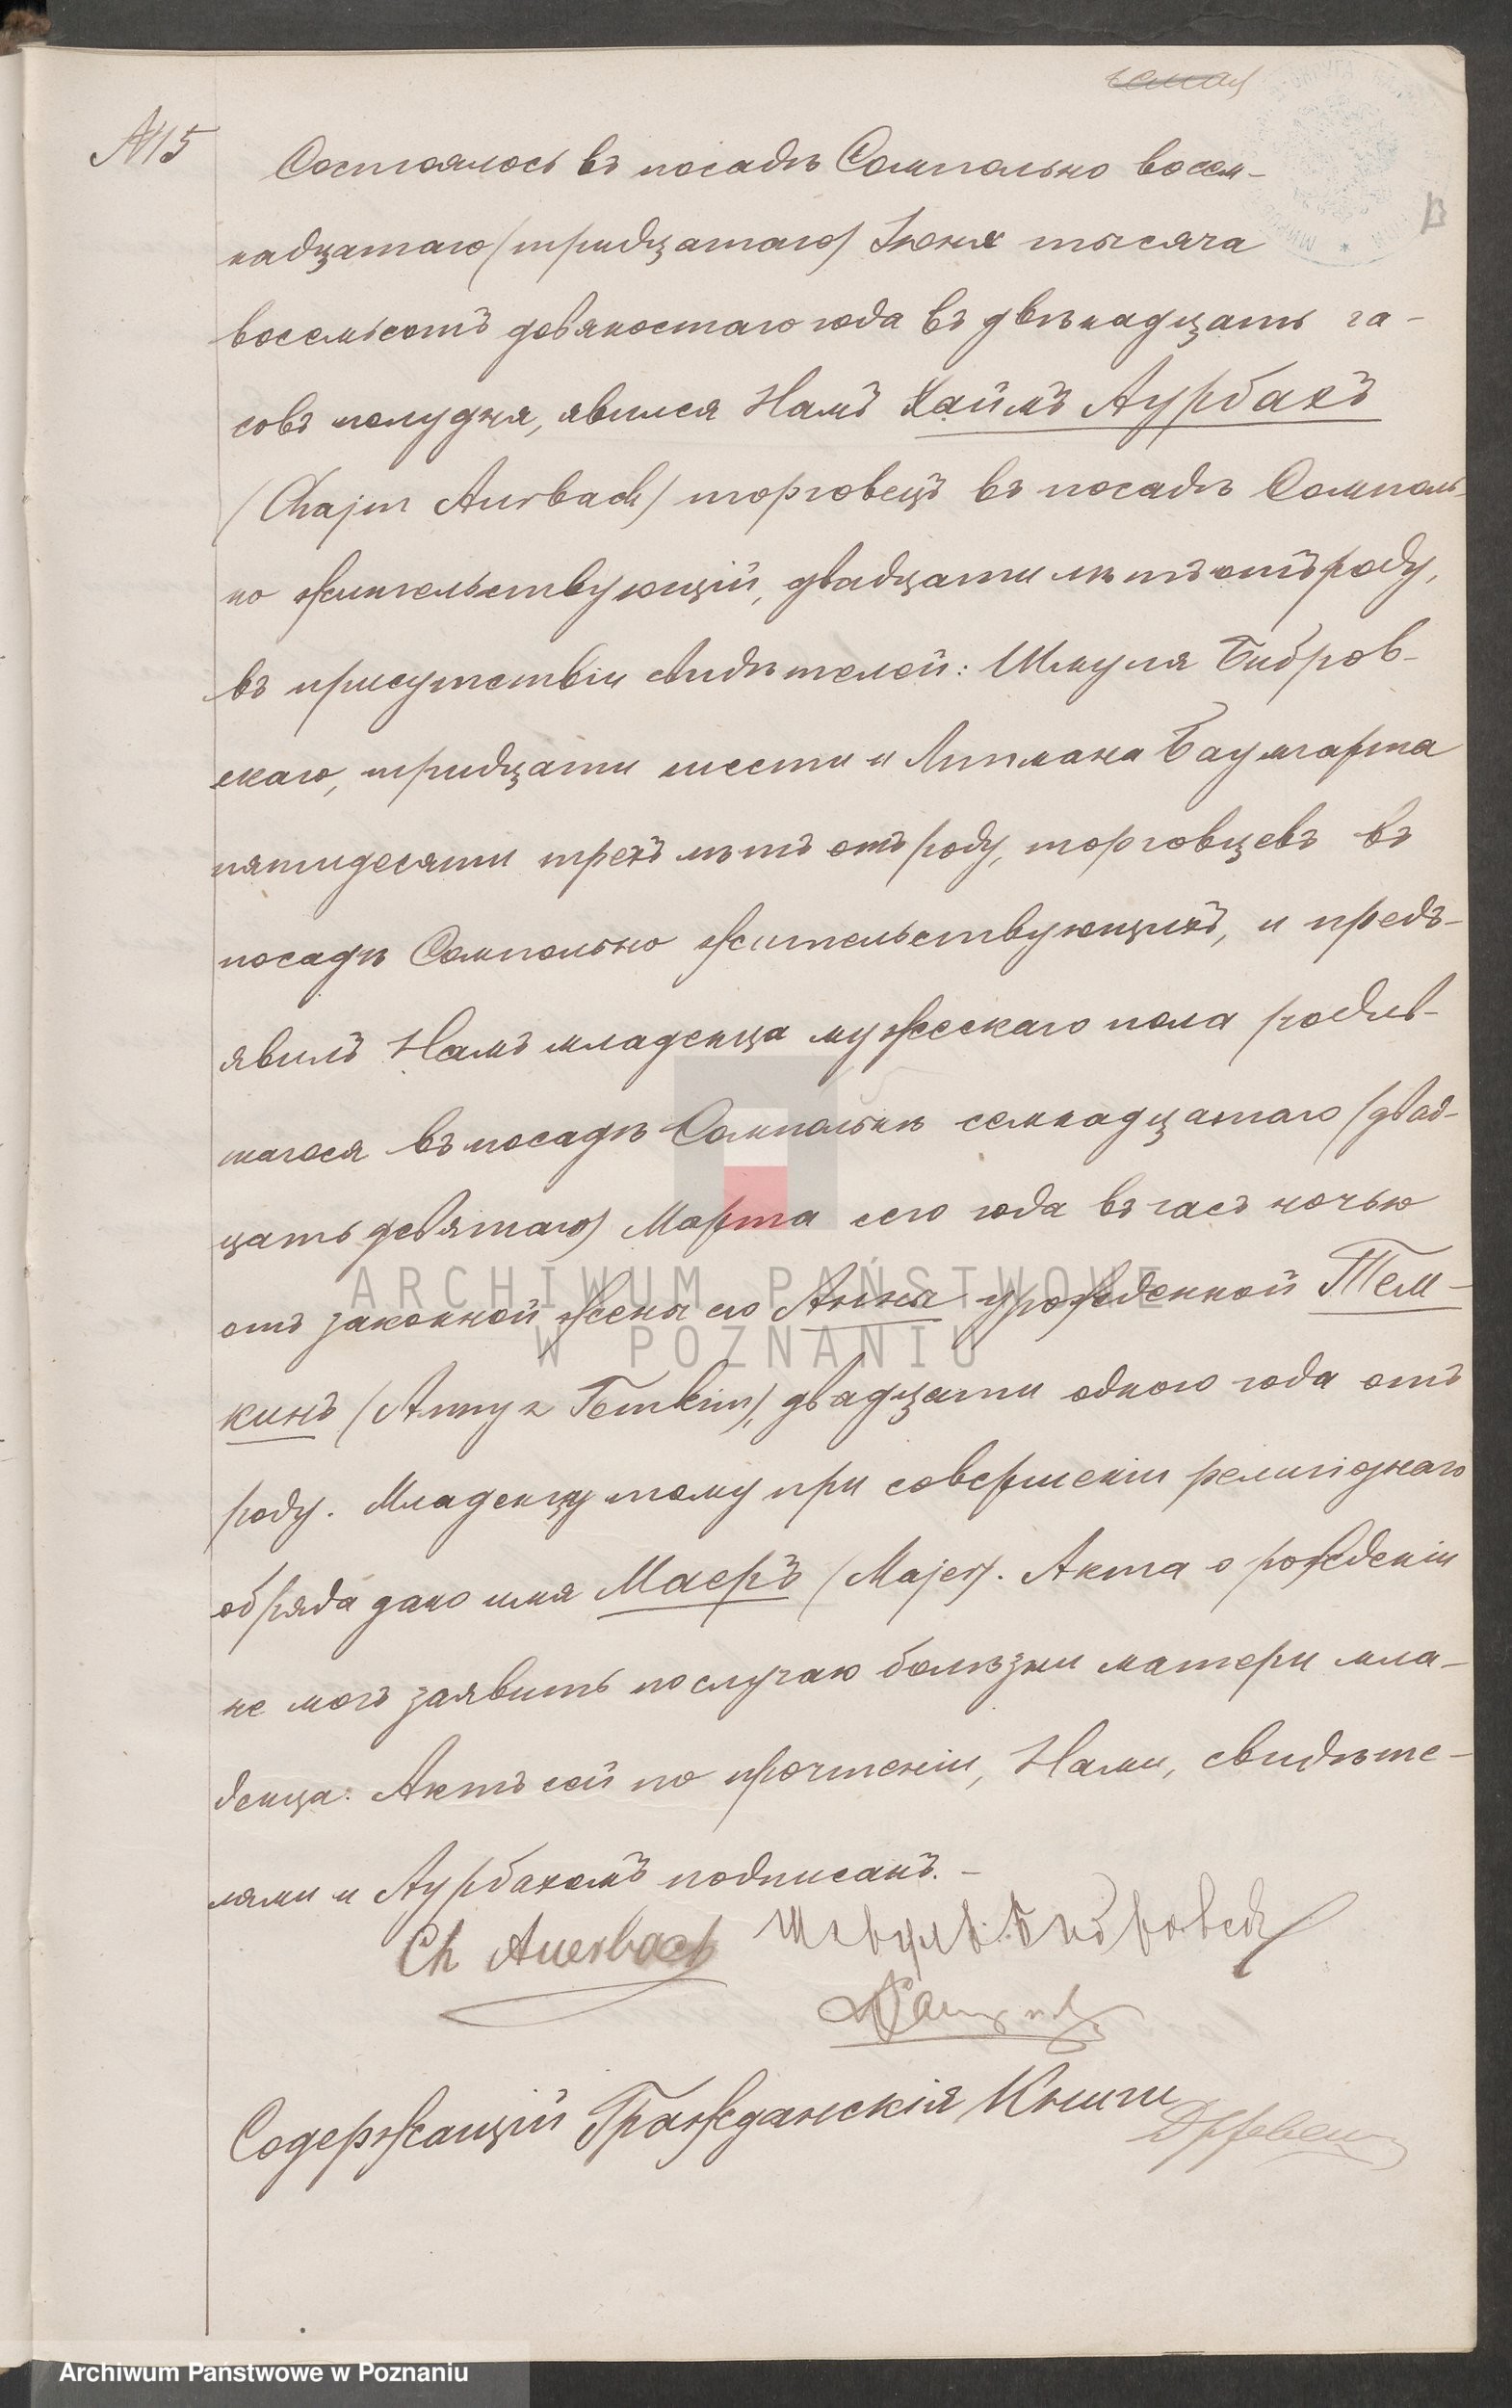 №15
Состоялось въ посадѣ Сомпольно восем-
надцатаго (тридцатаго) Іюня тысяча
восемьсотъ девяностаго года въ двѣнадцать ча-
совъ полудня, явился Намъ Хаимъ Аурбахъ
(Chajm Aurbach) торговецъ въ посадѣ Сомполь-
но жительствующій, двадцати лѣтъ отъ роду,
въ присутствіи свидѣтелей: Шмуля Бибров-
скаго, тридцати шести и Липмана Баумгарта
пятидесяти трехъ лѣтъ отъ роду, торговцевъ въ
посадѣ Сомпольно жительствующихъ, и предъ-
явилъ Намъ младенца мужескаго пола родив-
шагося въ посадѣ Сомпольнѣ семнадцатаго (двад-
цать девятаго) Марта сего года въ часъ ночью
отъ законной жены его Анны урожденной Тем-
кинъ (Anny z Temkin), двадцати одного года отъ
роду. Младенцу тому при совершеніи религіознаго
обряда дано имя Маеръ (Majer). Акта о рожденіи
не могъ заявить по случаю болѣзни матери мла-
денца. Актъ сей по прочтеніи, Нами, свидѣте-
лями и Аурбахомъ подписанъ.-
Ch Auerbach
Содержащій Гражданскія Книги
ARCHIWUM PAŃSTWOWE
W POZNANIU
Archiwum Państwowe w Poznaniu